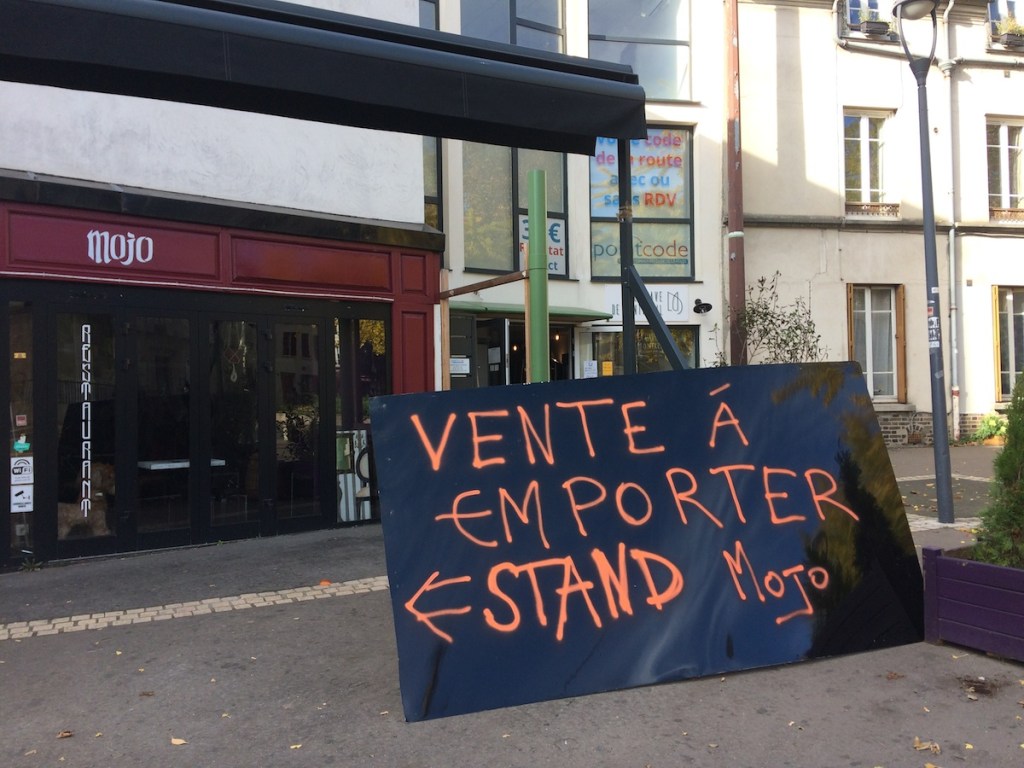 mojo
RESTAURANT
WiFi
Votre code
de la route
avec ou
sans RDV
pointcode
VENTE Á
EMPORTER
← STAND MOJO